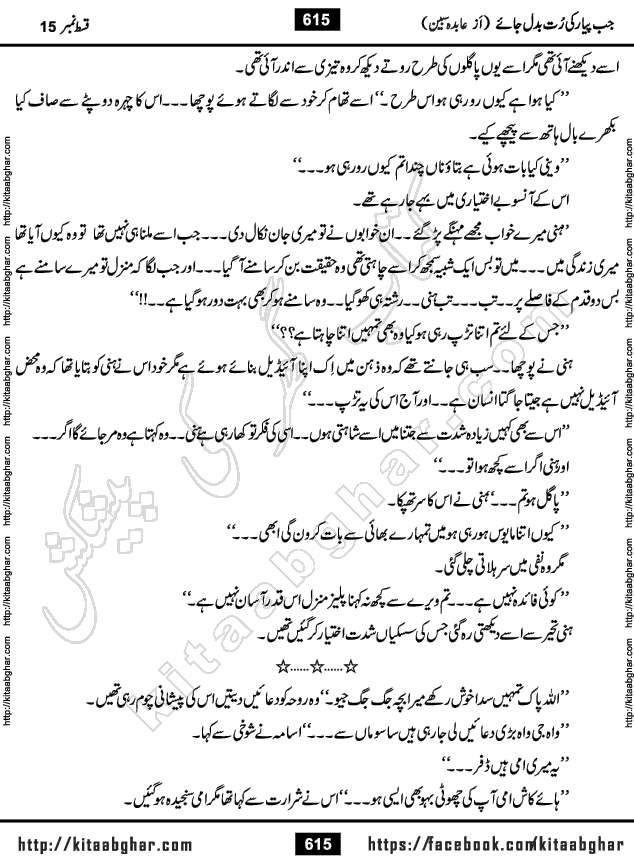 جب پیار کی رُت بدل جائے (اَز عابدہ سبین) 615 قسط نمبر 15
اسے دیکھنے آئی تھی مگر اسے یوں پاگلوں کی طرح روتے دیکھ کر وہ تیزی سے اندر آئی تھی۔
’’کیا ہوا ہے کیوں رو رہی ہو اس طرح ۔‘‘ اسے تھام کر خود سے لگاتے ہوئے پوچھا۔۔۔ اس کا چہرہ دوپٹے سے صاف کیا
بکھرے بال ہاتھ سے پیچھے کیے۔
’’وینی کیا بات ہوئی ہے بتاؤ ناں چندا تم کیوں رو رہی ہو۔۔۔‘‘
اس کے آنسو بے اختیاری میں بہے جا رہے تھے۔
’ہنی میرے خواب مجھے مہنگے پڑ گئے۔۔ ان خوابوں نے تو میری جان نکال دی۔۔۔ جب اسے ملنا ہی نہیں تھا تو وہ کیوں آیا تھا
میری زندگی میں۔۔۔ میں تو بس ایک شبیہ سمجھ کر اسے چاہتی تھی وہ حقیقت بن کر سامنے آ گیا۔۔۔ اور جب لگا کہ منزل تو میرے سامنے ہے
بس دو قدم کے فاصلے پر۔۔ تب۔۔۔ تب ہنی۔۔ رشتہ ہی کھو گیا۔۔ وہ سامنے ہو کر بھی بہت دور ہو گیا ہے۔۔!!‘‘
’’جس کے لئے تم اتنا تڑپ رہی ہو کیا وہ بھی تمہیں اتنا چاہتا ہے؟؟‘‘
ہنی نے پوچھا۔۔ سب ہی جانتے تھے کہ وہ ذہن میں اِک اپنا آئیڈیل بنائے ہوئے ہے مگر خود اس نے ہنی کو بتایا تھا کہ وہ محض
آئیڈیل نہیں ہے جیتا جاگتا انسان ہے۔۔ اور آج اس کی یہ تڑپ۔۔۔‘‘
’’اس سے بھی کہیں زیادہ شدت سے جتنا میں اسے شاہتی ہوں۔۔ اسی کی فکر تو کھا رہی ہے ہنی۔۔ وہ کہتا ہے وہ مر جائے گا اگر۔۔۔
اور ہنی اگر اسے کچھ ہوا تو۔۔۔‘‘
’’پاگل ہو تم۔۔۔‘‘ ہنی نے اس کا سر تھپکا۔
’’کیوں اتنا مایوس ہو رہی ہو میں تمہارے بھائی سے بات کرون گی ابھی۔۔۔‘‘
مگر وہ نفی میں سر ہلاتی چلی گئی۔
’’کوئی فائدہ نہیں ہے۔۔۔ تم ویرے سے کچھ نہ کہنا پلیز منزل اس قدر آسان نہیں ہے۔‘‘
ہنی تحیر سے اسے دیکھتی رہ گئی جس کی سسکیاں شدت اختیار کر گئیں تھیں۔
☆......☆......☆
’’اللہ پاک تمہیں سدا خوش رکھے میرا بچہ جگ جگ جیو۔‘‘ وہ روحہ کو دعائیں دیتیں اس کی پیشانی چوم رہی تھیں۔
’’واہ جی واہ بڑی دعائیں لی جا رہی ہیں ساسوماں سے۔۔۔‘‘ اسامہ نے شوخی سے کہا۔
’’یہ میری امی ہیں ڈفر۔۔۔‘‘
’’ہائے کاش امی آپ کی چھوٹی بہو بھی ایسی ہو۔۔۔‘‘ اس نے شرارت سے کہا تھا مگر امی سنجیدہ ہو گئیں۔
http://kitaabghar.com 615 https://facebook.com/kitaabghar
http://kitaabghar.com http://kitaabghar.com http://kitaabghar.com http://kitaabghar.com http://kitaabghar.com http://kitaabghar.com
http://kitaabghar.com http://kitaabghar.com http://kitaabghar.com http://kitaabghar.com http://kitaabghar.com http://kitaabghar.com
کتاب گھر کی پیشکش
kitaabghar.com